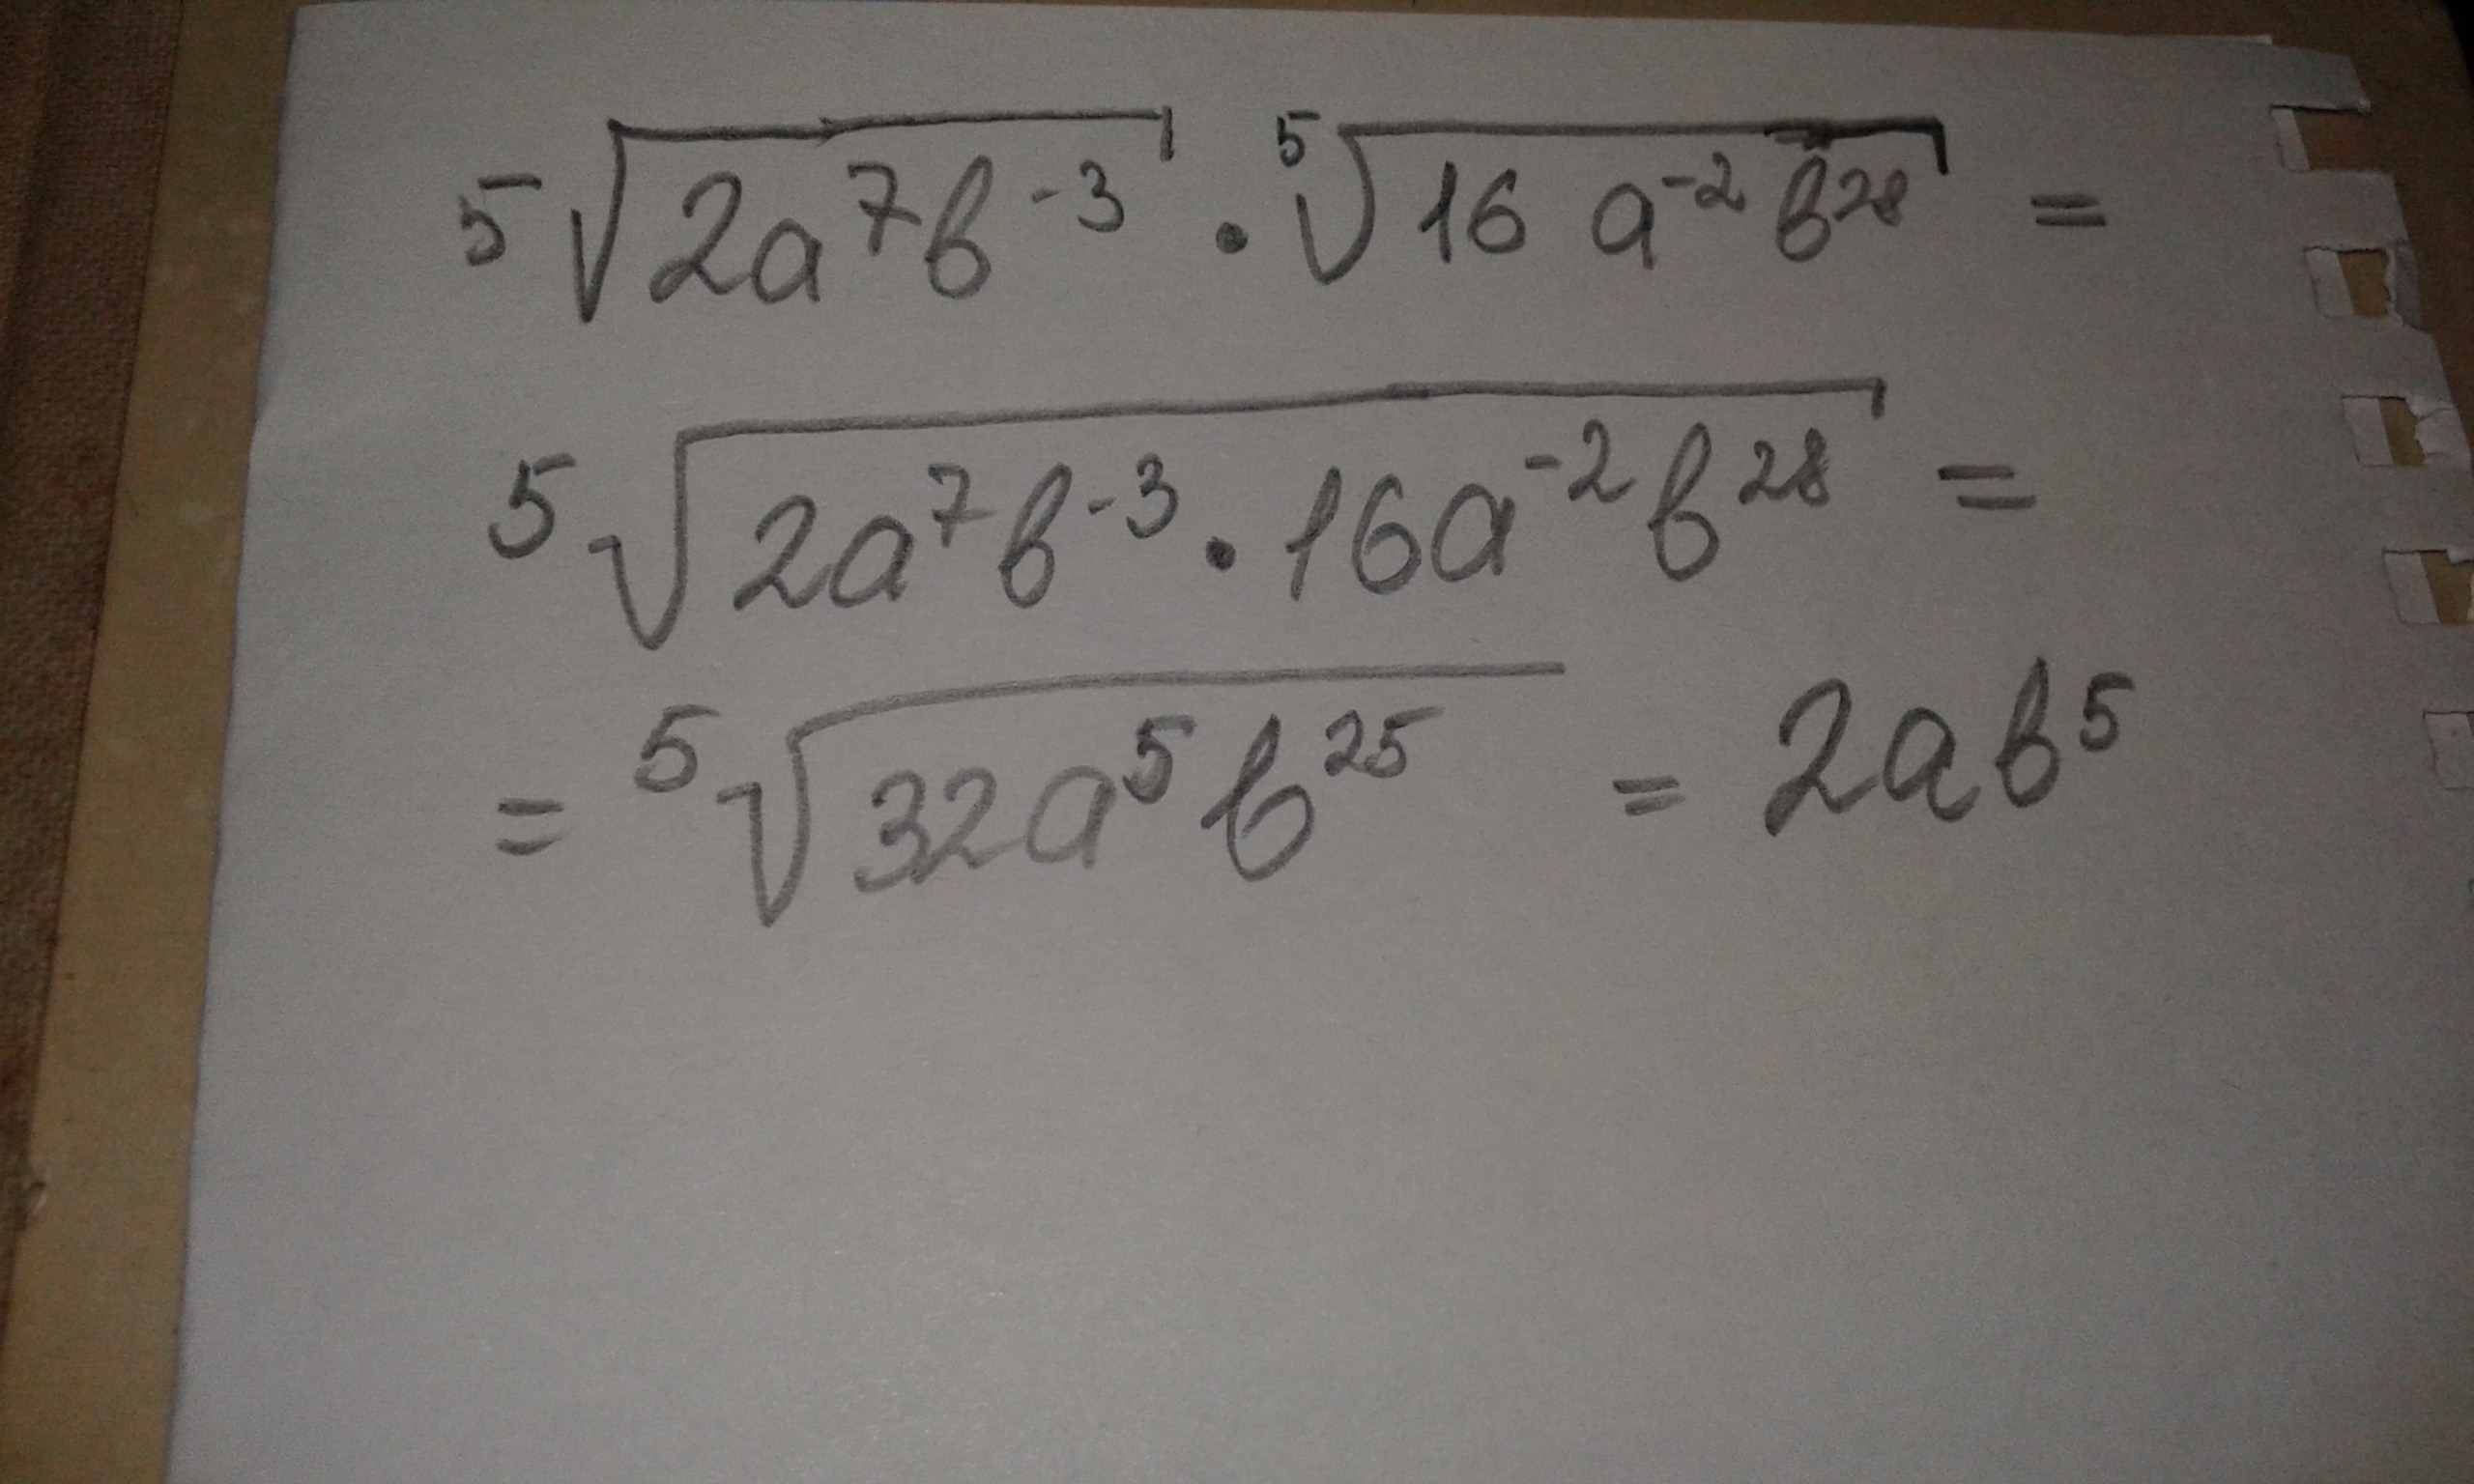 ⁵√(2a⁷b⁻³) · ⁵√(16a⁻²b²⁸) =
⁵√(2a⁷b⁻³ · 16a⁻²b²⁸) =
= ⁵√(32a⁵b²⁵) = 2ab⁵